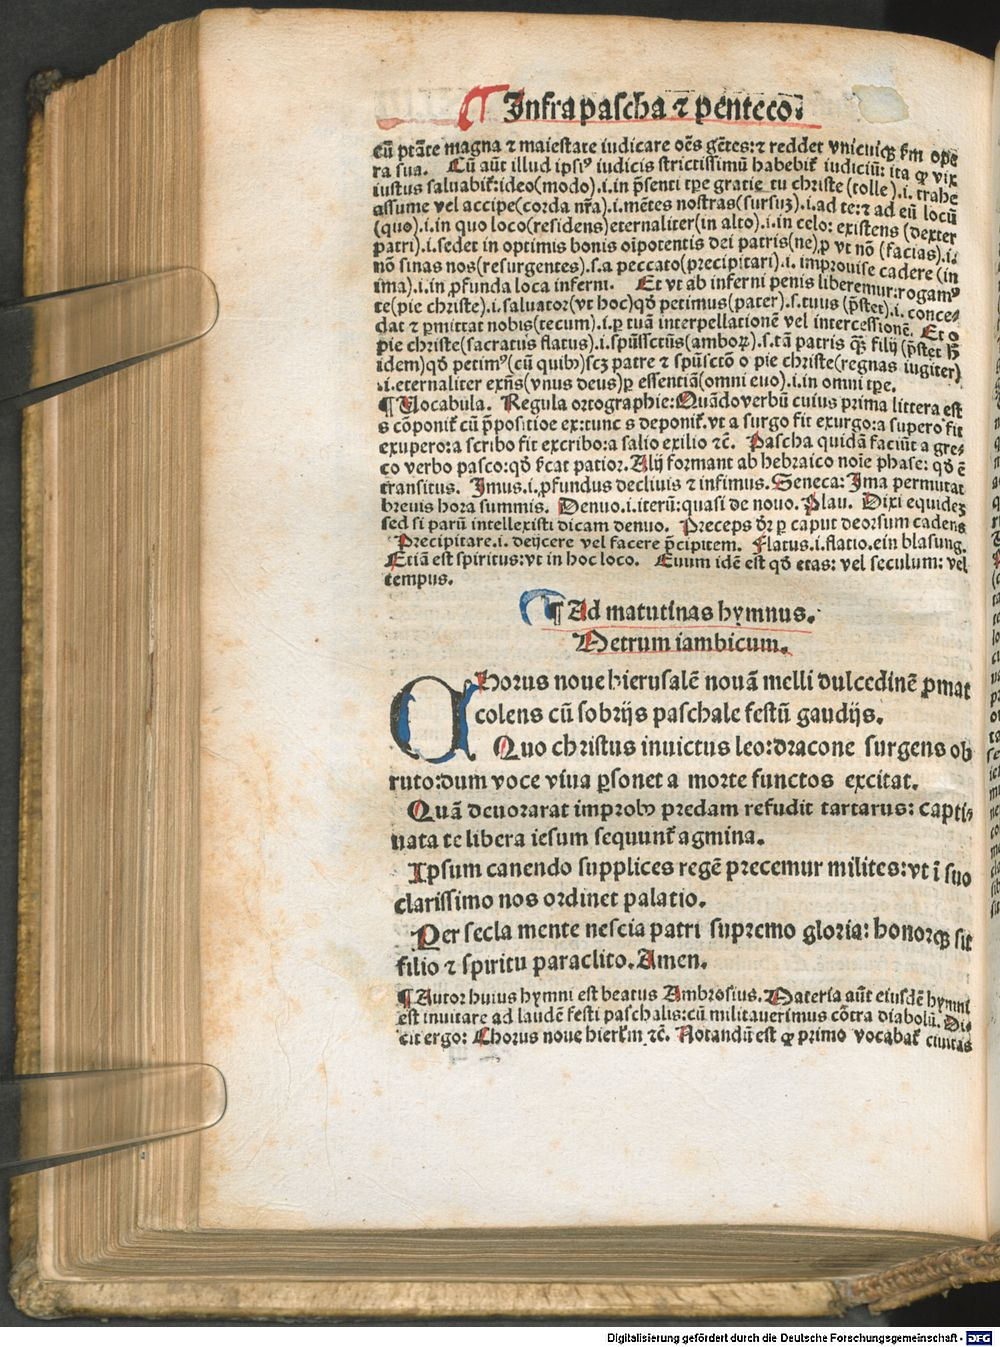 ¶ Infra pascha ⁊ penteco.
cū ptāte magna ⁊ maiestate iudicare oēs gētes: ⁊ reddet vnicuiqꝫ fm ope
ra sua. Cū aūt illud ipsiꝰ iudicis strictissimū habebit᷑ iudiciū: ita ꝙ vix
iustus saluabit᷑: ideo(modo).i.in p̄senti tp̄e gratie tu christe (tolle).i. trahe
assume vel accipe(corda nr̄a).i.mētes nostras(sursuꝫ).i.ad te: ⁊ ad eū locū
(quo).i.in quo loco(residens)eternaliter(in alto).i.in celo: existens (dexter
patri).i.sedet in optimis bonis oīpotentis dei patris(ne)ꝓ vt nō (facias).i.
nō sinas nos(resurgentes).s.a peccato(precipitari).i. improuise cadere (in
ima).i.in ꝓfunda loca inferni. Et vt ab inferni penis liberemur: rogamꝰ
te(pie christe).i.saluator(vt hoc)qđ petimus(pater).s.tuus (p̄stet).i. conce-
dat ⁊ ꝑmittat nobis(tecum).i.ꝑ tuā interpellationē vel intercessionē. Et o
pie christe(sacratus flatus).i.spūssctūs(amboꝝ).s.tā patris qꝫ filij (p̄stet h̄
idem)qđ petimꝰ(cū quibꝰ)scꝫ patre ⁊ spūsctō o pie christe(regnas iugiter)
.i.eternaliter exn̄s(vnus deus)ꝑ essentiā(omni euo).i.in omni tp̄e.
¶ Vocabula. Regula ortographie: Quādo verbū cuius prima littera est
s cōponit᷑ cū p̄positioe ex: tunc s deponit᷑. vt a surgo fit exurgo: a supero fit
exupero: a scribo fit excribo: a salio exilio ⁊c̄. Pascha quidā faciūt a gre-
co verbo pasco: qđ s̄cat patior. Alij formant ab hebraico noīe phase: qđ ē
transitus. Imus.i.ꝓfundus decliuis ⁊ infimus. Seneca: Ima permutat
breuis hora summis. Denuo.i.iterū: quasi de nouo. Plau. Dixi equideꝫ
sed si parū intellexisti dicam denuo. Preceps dr̄ ꝑ caput deorsum cadens
Precipitare.i. deijcere vel facere p̄cipitem. Flatus.i.flatio.ein blasung.
Etiā est spiritus: vt in hoc loco. Euum idē est qđ etas: vel seculum: vel
tempus.
¶ Ad matutinas hymnus.
Metrum iambicum.
Chorus noue hierusalē nouā melli dulcedinē ꝓmat
colens cū sobrijs paschale festū gaudijs.
Quo christus inuictus leo: dracone surgens ob
ruto: dum voce viua ꝑsonet a morte functos excitat.
Quā deuorarat improbꝰ predam refudit tartarus: capti-
uata te libera iesum sequunt᷑ agmina.
Ipsum canendo supplices regē precemur milites: vt ī suo
clarissimo nos ordinet palatio.
Per secla mente nescia patri supremo gloria: honorqꝫ sit
filio ⁊ spiritu paraclito. Amen.
¶ Autor huius hymni est beatus Ambrosius. Materia aūt eiusdē hymni
est inuitare ad laudē festi paschalis: cū militauerimus cōtra diabolū. Di-
cit ergo: Chorus noue hierłm ⁊c̄. Notandū est ꝙ primo vocabat᷑ ciuitas
Digitalisierung gefördert durch die Deutsche Forschungsgemeinschaft - DFG